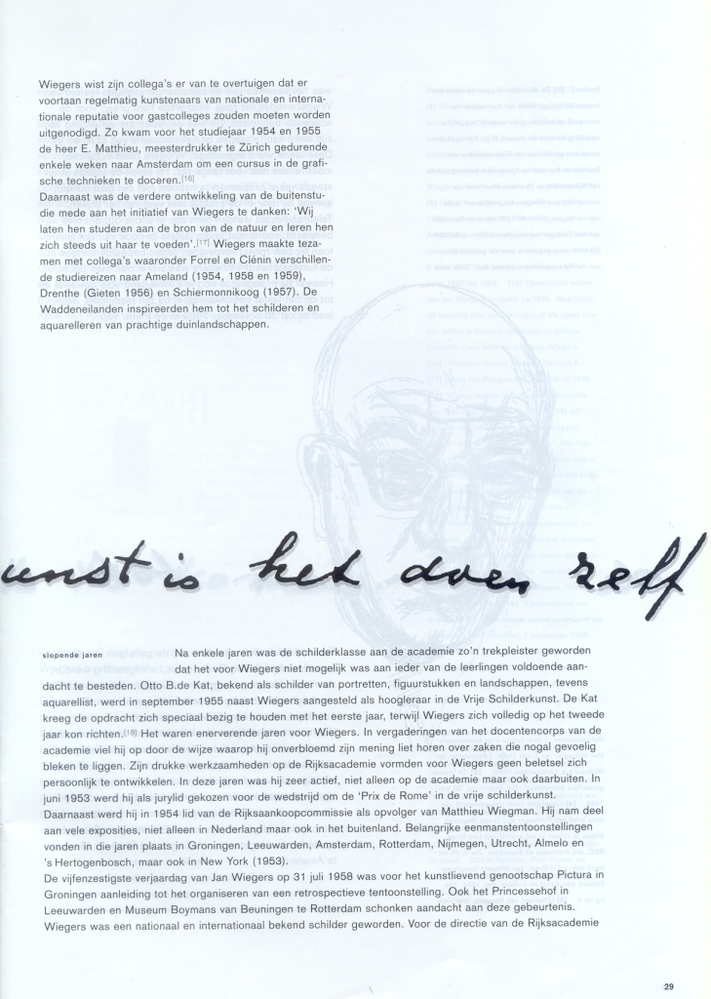 Wiegers wist zijn collega's er van te overtuigen dat er
voortaan regelmatig kunstenaars van nationale en interna-
tionale reputatie voor gastcolleges zouden moeten worden
uitgenodigd. Zo kwam voor het studiejaar 1954 en 1955
de heer E. Matthieu, meesterdrukker te Zürich gedurende
enkele weken naar Amsterdam om een cursus in de grafi-
sche technieken te doceren.[16]
Daarnaast was de verdere ontwikkeling van de buitenstu-
die mede aan het initiatief van Wiegers te danken: 'Wij
laten hen studeren aan de bron van de natuur en leren hen
zich steeds uit haar te voeden'.[17] Wiegers maakte teza-
men met collega's waaronder Forrel en Clénin verschillen-
de studiereizen naar Ameland (1954, 1958 en 1959),
Drenthe (Gieten 1956) en Schiermonnikoog (1957). De
Waddeneilanden inspireerden hem tot het schilderen en
aquarelleren van prachtige duinlandschappen.
unst is het doen zelf
slopende jaren Na enkele jaren was de schilderklasse aan de academie zo'n trekpleister geworden
dat het voor Wiegers niet mogelijk was aan ieder van de leerlingen voldoende aan-
dacht te besteden. Otto B.de Kat, bekend als schilder van portretten, figuurstukken en landschappen, tevens
aquarellist, werd in september 1955 naast Wiegers aangesteld als hoogleraar in de Vrije Schilderkunst. De Kat
kreeg de opdracht zich speciaal bezig te houden met het eerste jaar, terwijl Wiegers zich volledig op het tweede
jaar kon richten.[18] Het waren enerverende jaren voor Wiegers. In vergaderingen van het docentencorps van de
academie viel hij op door de wijze waarop hij onverbloemd zijn mening liet horen over zaken die nogal gevoelig
bleken te liggen. Zijn drukke werkzaamheden op de Rijksacademie vormden voor Wiegers geen beletsel zich
persoonlijk te ontwikkelen. In deze jaren was hij zeer actief, niet alleen op de academie maar ook daarbuiten. In
juni 1953 werd hij als jurylid gekozen voor de wedstrijd om de 'Prix de Rome' in de vrije schilderkunst.
Daarnaast werd hij in 1954 lid van de Rijksaankoopcommissie als opvolger van Matthieu Wiegman. Hij nam deel
aan vele exposities, niet alleen in Nederland maar ook in het buitenland. Belangrijke eenmanstentoonstellingen
vonden in die jaren plaats in Groningen, Leeuwarden, Amsterdam, Rotterdam, Nijmegen, Utrecht, Almelo en
's Hertogenbosch, maar ook in New York (1953).
De vijfenzestigste verjaardag van Jan Wiegers op 31 juli 1958 was voor het kunstlievend genootschap Pictura in
Groningen aanleiding tot het organiseren van een retrospectieve tentoonstelling. Ook het Princessehof in
Leeuwarden en Museum Boymans van Beuningen te Rotterdam schonken aandacht aan deze gebeurtenis.
Wiegers was een nationaal en internationaal bekend schilder geworden. Voor de directie van de Rijksacademie
29